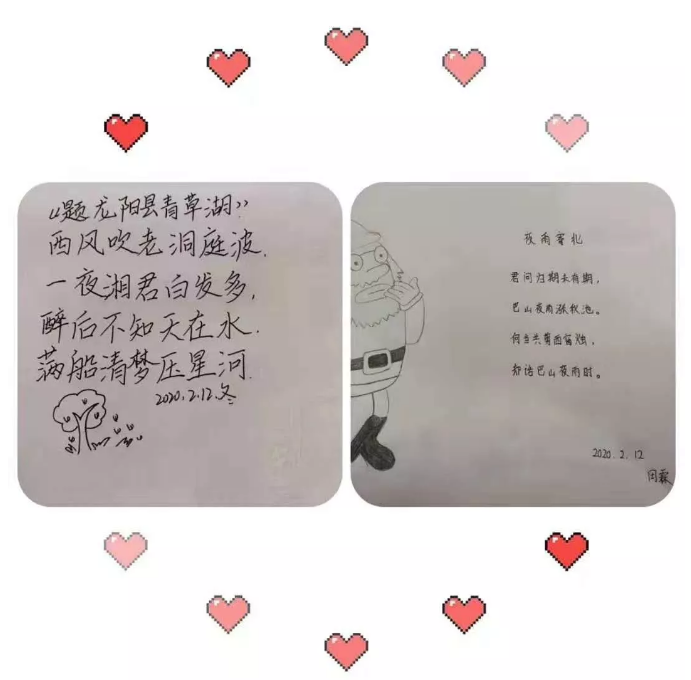 《题龙阳县青草湖》
西风吹老洞庭波.
一夜湘君白发多,
醉后不知天在水.
满船清梦压星河.
2020.2.12.冬
夜雨寄北
君问归期未有期,
巴山夜雨涨秋池。
何当共剪西窗烛,
却话巴山夜雨时。
2020.2.12
闵霖